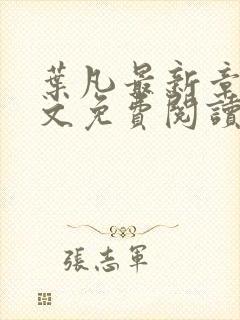 葉凡最新章
文免費閱讀
張志軍